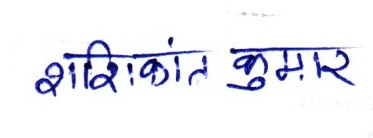 शशिकांत कुमार